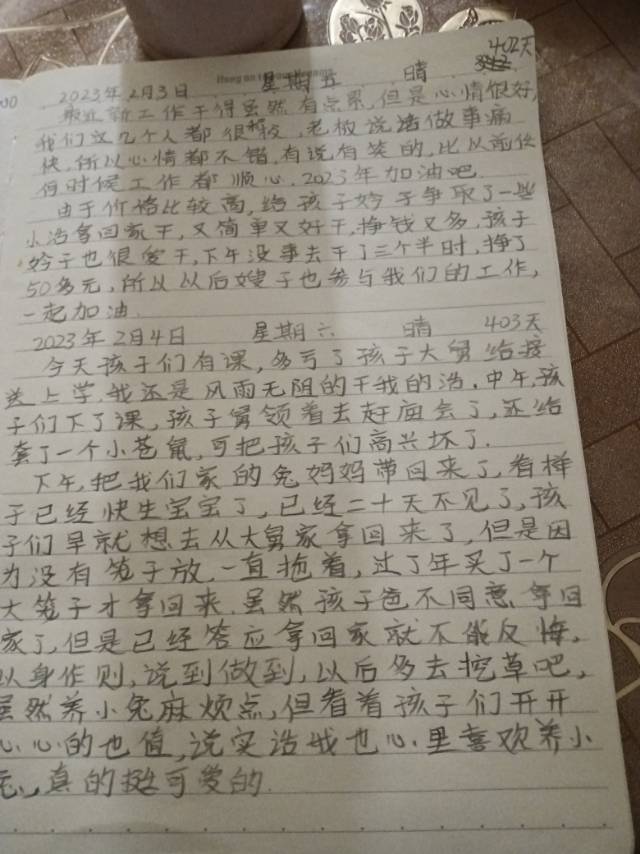 402天
2023年2月3日 星期五 晴
最近新工作干得虽然有点累,但是心情很好,
我们这几个人都很和皮,老板说话做事痛
快,所以心情都不错,有说有笑的,比以前任
何时候工作都顺心,2023年加油吧
由于价格比较高,给孩子妗子争取了一些
小活拿回家干,又简单又好干,挣钱又多,孩子
妗子也很爱干,下午没事去干了三个半时,挣了
50多元,所以以后嫂子也参与我们的工作,
一起加油.
2023年2月4日 星期六 晴 403天
今天孩子们有课,多亏了孩子大舅给接
送上学,我还是风雨无阻的干我的活.中午,孩
子们下了课,孩子舅领着去赶庙会了,还给
套了一个小苍鼠,可把孩子们高兴坏了.
下午,把我们家的兔妈妈带回来了,看样
子已经快生宝宝了,已经二十天不见了,孩
子们早就想去从大舅家拿回来了,但是因
为没有笼子放,一直拖着,过了年买了一个
大笼子才拿回来.虽然孩子爸不同意拿回
家了,但是已经答应拿回家就不能反悔,
以身作则,说到做到,以后多去挖草吧,
虽然养小兔麻烦点,但看着孩子们开开
心心的也值,说实话我也心里喜欢养小
兔,真的挺可爱的.